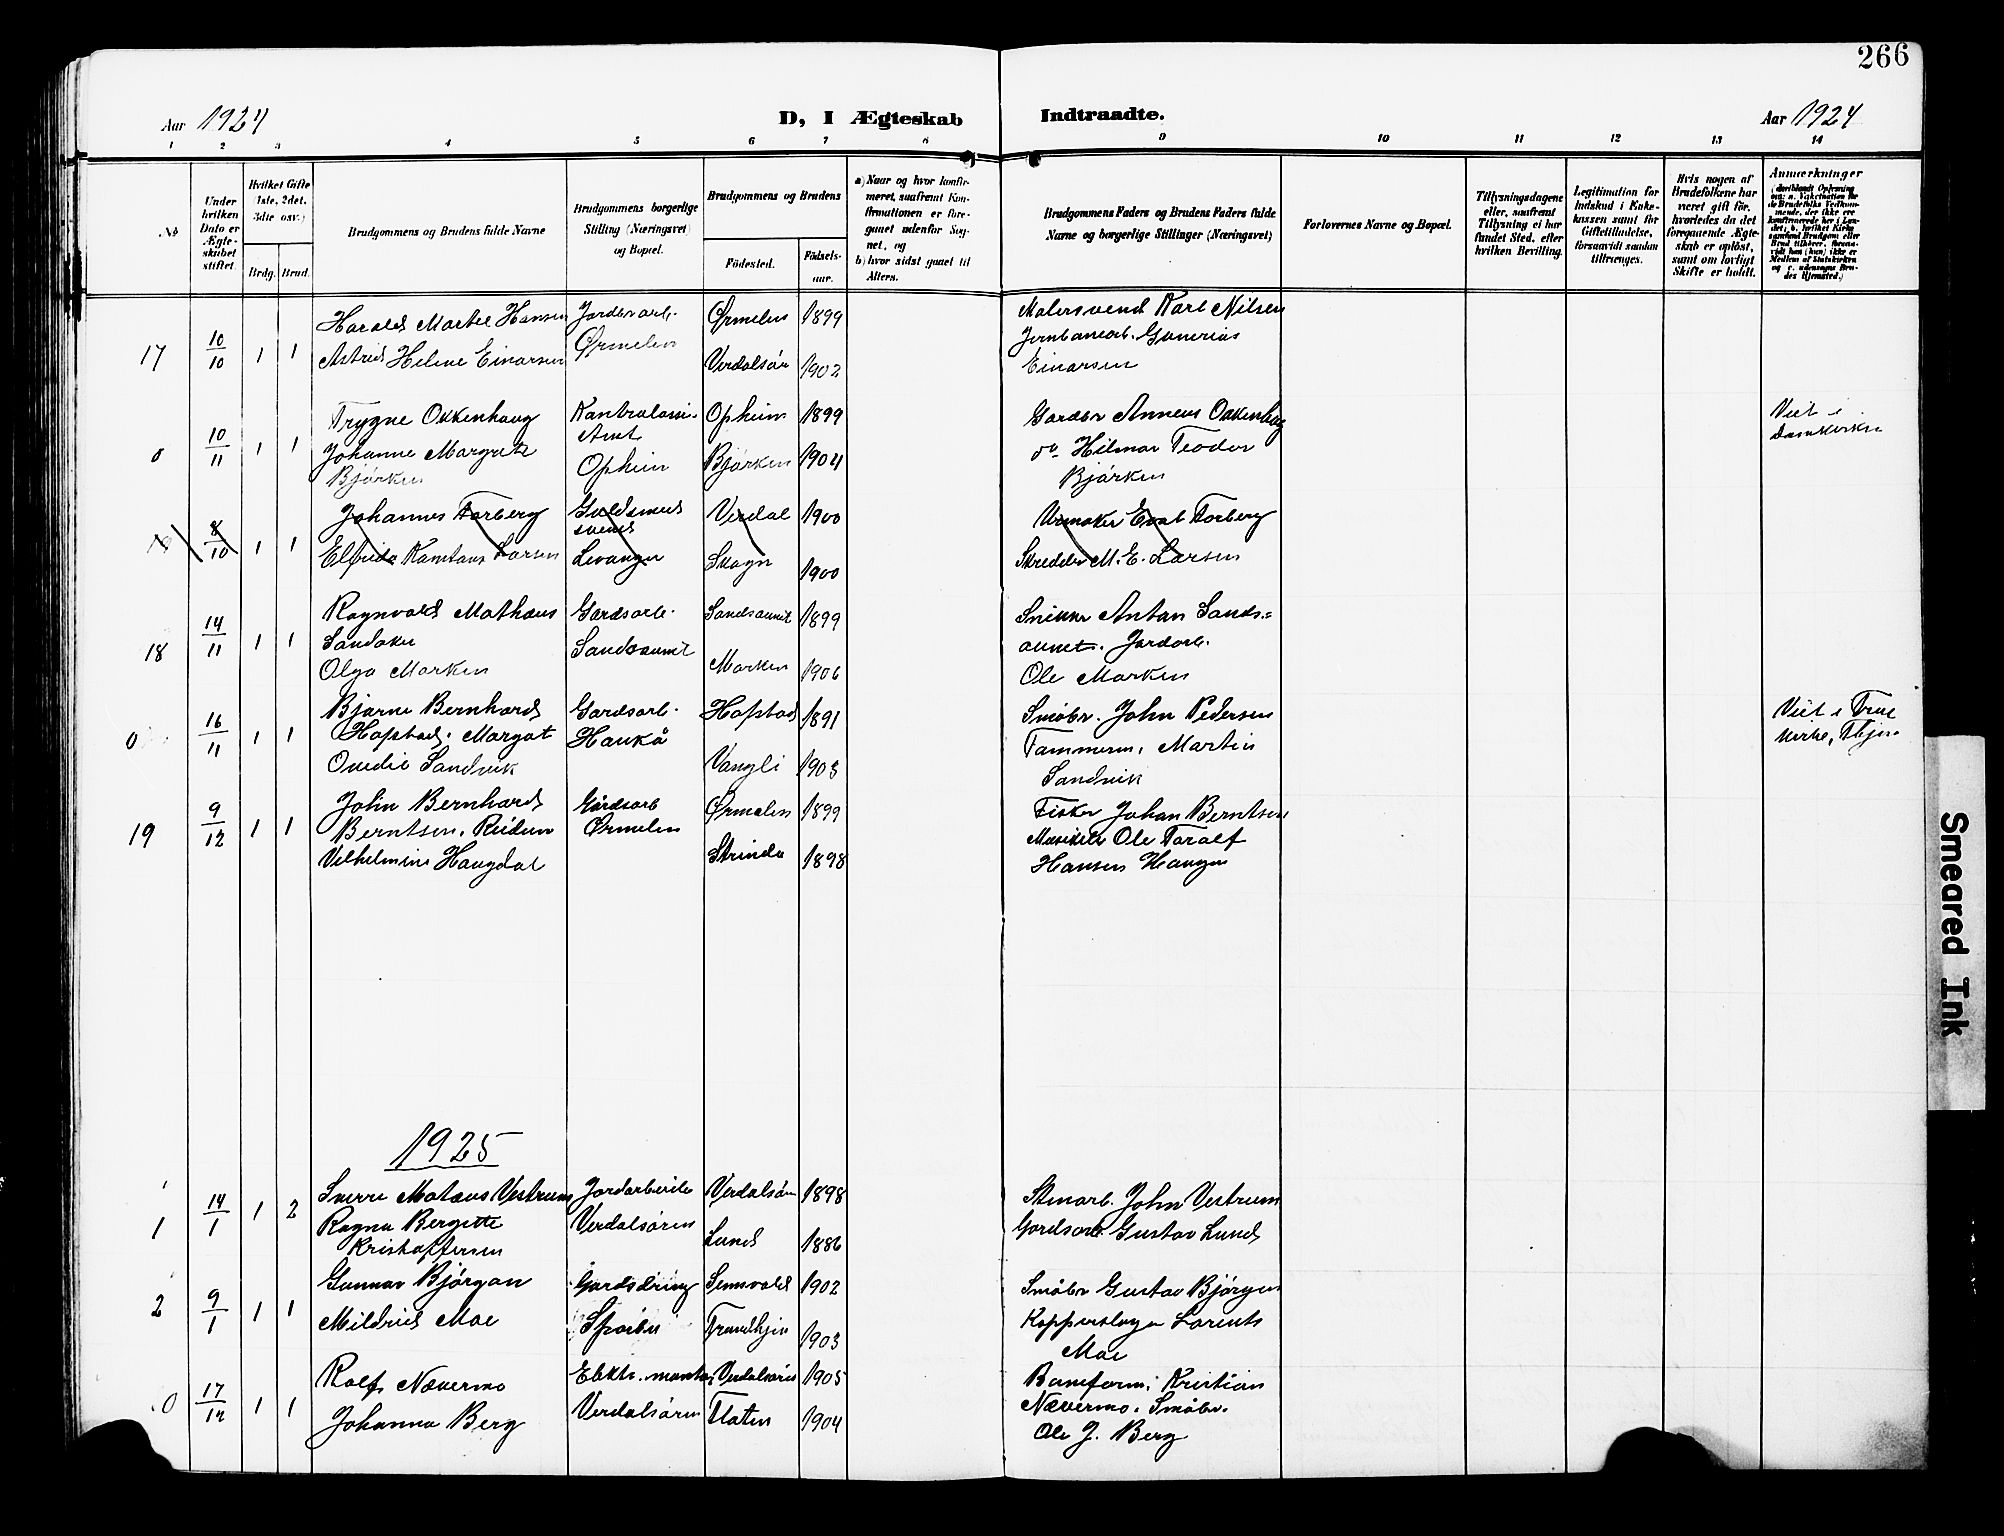 266
Aar 1924
D, I Ægteskab Indtraadte.
Aar 1924
1 2 3 4 5 6 7 8 9 10 11 12 13 14
No
Under hvilken Dato er Ægteskabet stiftet.
Hvilket Gifte (1ste, 2det, 3die osv.)
Brdg. Brud.
Brudgommens og Brudens fulde Navne
Brudgommens borgerlige Stilling (Næringsvei) og Bopæl.
Brudgommens og Brudens
Fødested.
Fødselsaar.
a) Naar og hvor konfirmeret, saafremt Konfirmationen er foregaaet udenfor Sognet, og
b) hvor sidst gaaet til Alters.
Brudgommens Faders og Brudens Faders fulde Navne og borgerlige Stillinger (Næringsvei)
Forlovernes Navne og Bopæl.
Tillysningsdagene eller, saafremt Tillysning ei har fundet Sted, efter hvilken Bevilling.
Legitimation for Indskud i Enkekassen samt for Giftetilladelse, forsaavidt saadan tiltrænges.
Hvis nogen af Brudefolkene har været gift før, hvorledes da det foregaaende Ægteskab er opløst, samt om lovligt Skifte er holdt.
Anmærkninger
17 10/10 1 1 Harald Martel Hansen Jordbrarb. Ørmelen 1899 Malersvend Karl Nilsen
Astrid Helene Einarsen Ørmelen Verdalsør 1902 Jernbanearb. Gunerius
Einarsen
0 10/11 1 1 Trygve Okkenhaug Opheim 1899 Gardbr Anneus Okkenhaug Viet i
Johanne Margrete Opheim Bjørken 1904 do Hilmar Teodor Domkirken
Bjørken Bjørken
8/10 1 1 Johannes Forberg Guldsmed Verdal 1900 Urmaker Evald Forberg
svend
Elfrida Larsen Levanger Skogn 1900 Skredder M. E. Larsen
18 14/11 1 1 Ragnvald Mathæus Gardsarb. Sandsaunet 1899 Snikker Anton Sands-
Sandaker Sandsaunet aunet. Jordarb.
Olga Marken Marken 1906 Ole Marken
0 16/11 1 1 Bjarne Bernhard Gardsarb. Hofstad 1891 Småbr. John Pedersen Viet i Frue
Hofstad. Margot Haukå Tømmerm. Martin Kirke,
Ovedie Sandvik Vangli 1903 Sandvik
19 9/12 1 1 John Bernhard Gårdsarb Ørmelen 1899 Fisker Johan Berntsen
Berntsen, Reidun Ørmelen Ole Toralf
Vilhelmine Haugdal Strinda 1898 Hansen Haugen
1925
1 14/1 1 2 Sverre Matæus Vestrum Jordarbeider Verdalsøra 1898 Stenarb. John Vestrum
Ragna Bergitte Verdalsøren Lund 1886 Gardsarb. Gustav Lund
Kristoffersen
2 9/1 1 1 Gunnar Bjørgan Gardsdreng Lensvald 1902 Småbr Gustav Bjørgan
Mildrid Moe Sparbu Trondhjem 1903 Kopperslager Lorents
Moe
0 17/12 1 1 Rolf Nævermo Elektr. montør Verdalsøren 1905 Baneform. Kristian
Johanna Berg Verdalsøren Flaten 1904 Nævermo. Småbr.
Ole J. Berg
Smeared Ink